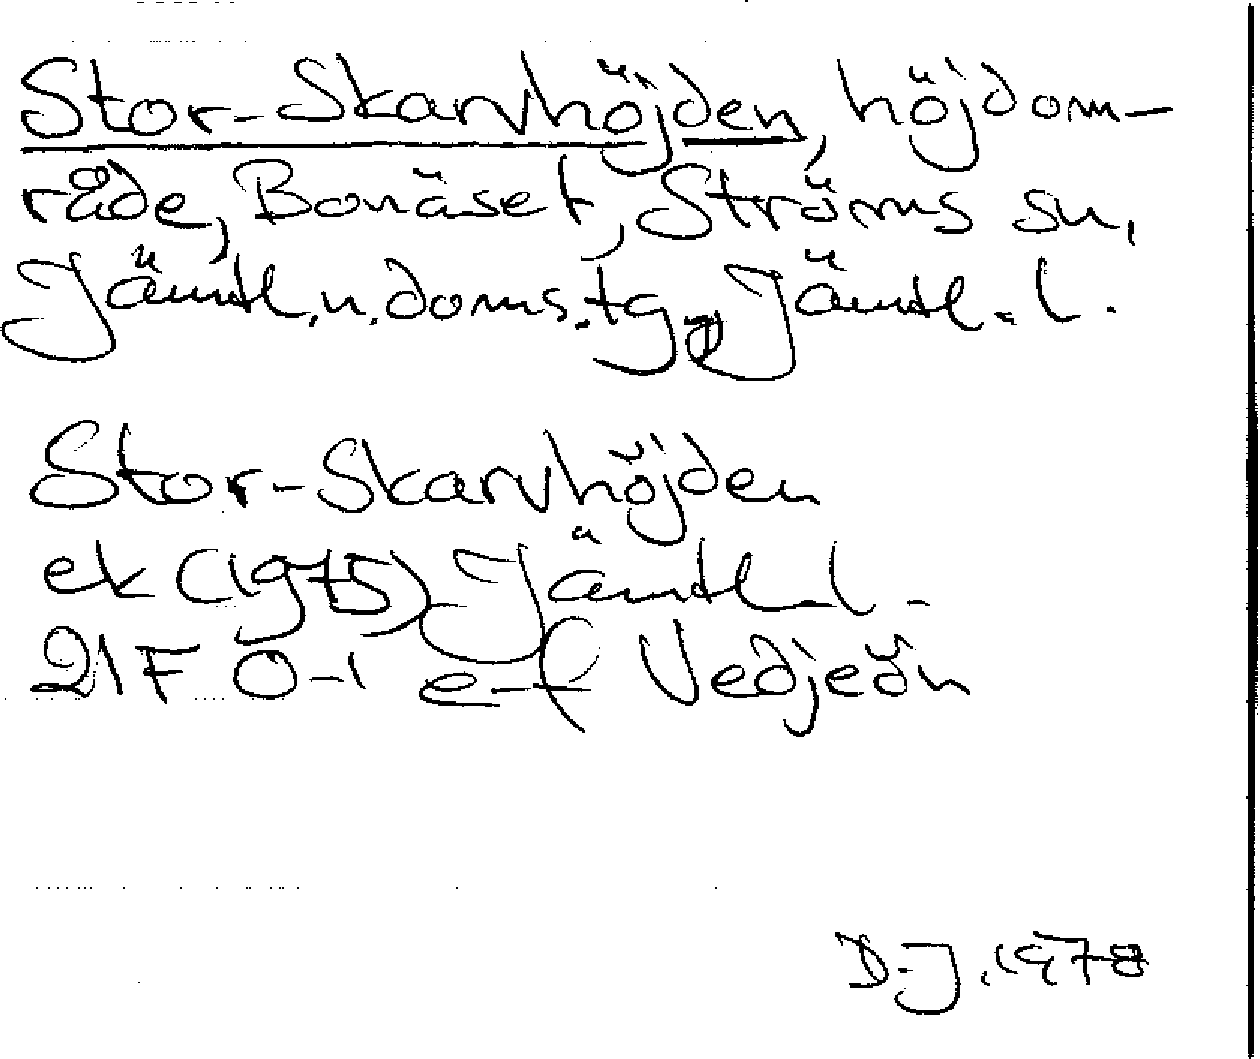 Stor-Skarvhöjden, höjdom-
råde, Bonäset, Ströms sn,
Jämtl.n.doms.tg, Jämtl.l.
Stor-Skarvhöjden
ek (1975) Jämtl.l.
21F 0-1 e-f Vedjeön
D.J.1978